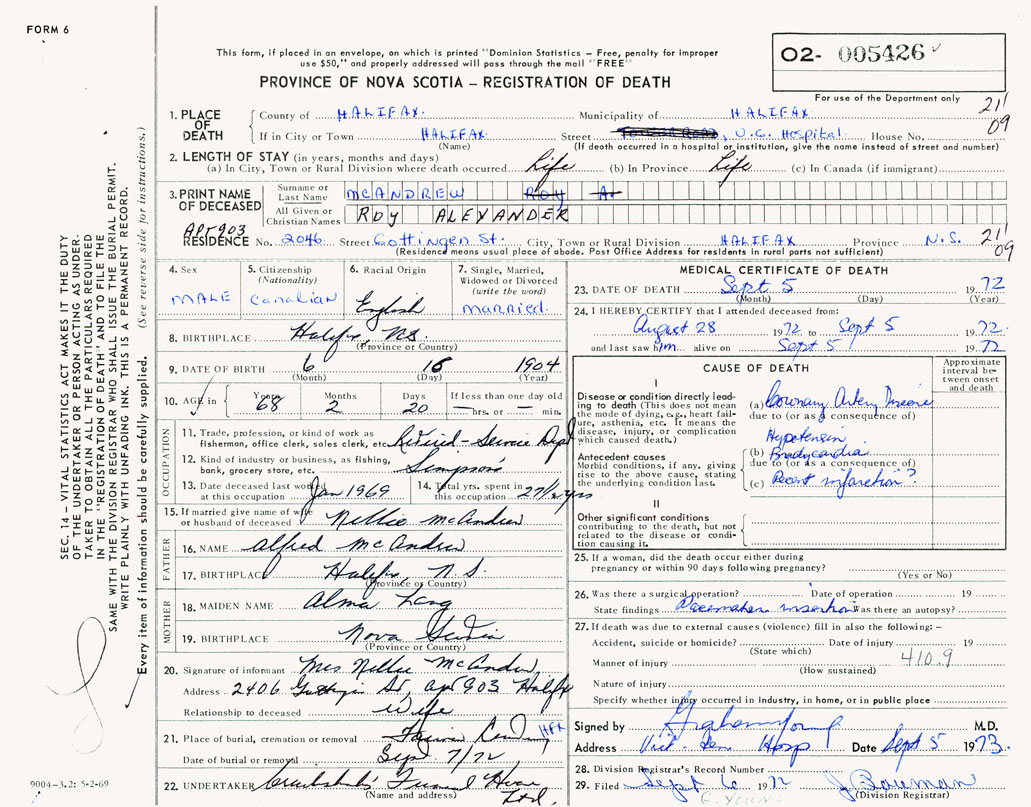 FORM 6
This form, if placed in an envelope, on which is printed "Dominion Statistics – Free, penalty for improper
use $50," and properly addressed will pass through the mail "FREE"
PROVINCE OF NOVA SCOTIA – REGISTRATION OF DEATH
O2- 005426
For use of the Department only
21'
09
1. PLACE OF DEATH
County of HALIFAX. Municipality of HALIFAX
If in City or Town HALIFAX. Street V.G. Hospital. House No.
(Name) (If death occurred in a hospital or institution, give the name instead of street and number)
2. LENGTH OF STAY (in years, months and days)
(a) In City, Town or Rural Division where death occurred Life (b) In Province Life (c) In Canada (if immigrant)
3. PRINT NAME OF DECEASED
Surname or Last Name McANDREW ROY A.
All Given or Christian Names ROY ALEXANDER
APT 903
RESIDENCE No. 2046 Street Gottingen St. City, Town or Rural Division HALIFAX Province N.S. 21'
09
(Residence means usual place of abode. Post Office Address for residents in rural parts not sufficient)
4. Sex
MALE
5. Citizenship (Nationality)
Canadian
6. Racial Origin
English
7. Single, Married, Widowed or Divorced (write the word)
married.
8. BIRTHPLACE Halifax, N.S.
(Province or Country)
9. DATE OF BIRTH 6 16 1904
(Month) (Day) (Year)
10. AGE in Years 68 Months 2 Days 20 If less than one day old
hrs. or min.
OCCUPATION
11. Trade, profession, or kind of work as
fisherman, office clerk, sales clerk, etc. Retired - Service Dept
12. Kind of industry or business, as fishing,
bank, grocery store, etc. Simpson's
13. Date deceased last worked
at this occupation Jan 1969
14. Total yrs. spent in
this occupation 27½ yrs
15. If married give name of wife
or husband of deceased Nellie McAndrew
FATHER
16. NAME Alfred McAndrew
17. BIRTHPLACE Halifax, N.S.
(Province or Country)
MOTHER
18. MAIDEN NAME Alma Lang
19. BIRTHPLACE Nova Scotia
(Province or Country)
20. Signature of informant Mrs Nellie McAndrew
Address 2406 Gottingen St, apt 903 Halifax
Relationship to deceased Wife
21. Place of burial, cremation or removal HFX
Date of burial or removal Sep. 7/72
22. UNDERTAKER Cruikshank's Funeral Home
(Name and address) Ltd.
MEDICAL CERTIFICATE OF DEATH
23. DATE OF DEATH Sept 5 1972
(Month) (Day) (Year)
24. I HEREBY CERTIFY that I attended deceased from:
August 28 1972 to Sept 5 1972.
and last saw him alive on Sept 5 1972
CAUSE OF DEATH
Approximate interval between onset and death
I
Disease or condition directly leading to death (This does not mean the mode of dying, e.g., heart failure, asthenia, etc. It means the disease, injury, or complication which caused death.)
(a) Coronary Artery Disease
due to (or as a consequence of)
Antecedent causes
Morbid conditions, if any, giving rise to the above cause, stating the underlying condition last.
Hypotension
(b) Bradycardia
due to (or as a consequence of)
(c) Recent infarction?
II
Other significant conditions
contributing to the death, but not related to the disease or condition causing it.
25. If a woman, did the death occur either during
pregnancy or within 90 days following pregnancy?
(Yes or No)
26. Was there a surgical operation? Date of operation 19
State findings Pacemaker insertion Was there an autopsy?
27. If death was due to external causes (violence) fill in also the following: –
Accident, suicide or homicide? Date of injury 19
(State which)
Manner of injury 410.9
(How sustained)
Nature of injury
Specify whether injury occurred in industry, in home, or in public place
Signed by M.D.
Address Vict. Gen Hosp Date Sept 5 1973.
28. Division Registrar's Record Number
29. Filed Sept 6 1972 J. Bowman
(Division Registrar)
SEC. 14 – VITAL STATISTICS ACT MAKES IT THE DUTY
OF THE UNDERTAKER OR PERSON ACTING AS UNDER-
TAKER TO OBTAIN ALL THE PARTICULARS REQUIRED
IN THE "REGISTRATION OF DEATH" AND TO FILE THE
SAME WITH THE DIVISION REGISTRAR WHO SHALL ISSUE THE BURIAL PERMIT.
WRITE PLAINLY WITH UNFADING INK. THIS IS A PERMANENT RECORD.
Every item of information should be carefully supplied. (See reverse side for instructions.)
9004-3.2: 5-2-69